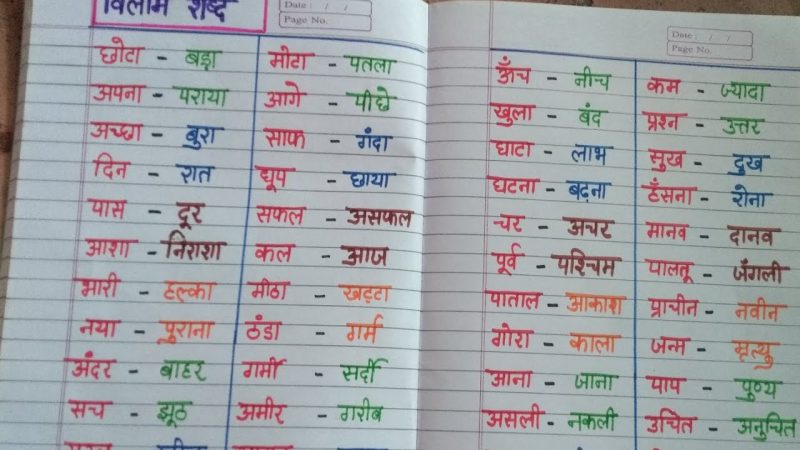 विलोम शब्द
Date : / /
Page No.
छोटा - बड़ा
अपना - पराया
अच्छा - बुरा
दिन - रात
पास - दूर
आशा - निराशा
भारी - हल्का
नया - पुराना
अंदर - बाहर
सच - झूठ
मोटा - पतला
आगे - पीछे
साफ - गंदा
धूप - छाया
सफल - असफल
कल - आज
मीठा - खट्टा
ठंडा - गर्म
गर्मी - सर्दी
अमीर - गरीब
Date : / /
Page No.
ऊँच - नीच
खुला - बंद
घाटा - लाभ
घटना - बढ़ना
चर - अचर
पूर्व - पश्चिम
पाताल - आकाश
गोरा - काला
आना - जाना
असली - नकली
कम - ज्यादा
प्रश्न - उत्तर
सुख - दुख
हँसना - रोना
मानव - दानव
पालतू - जँगली
प्राचीन - नवीन
जन्म - मृत्यु
पाप - पुण्य
उचित - अनुचित